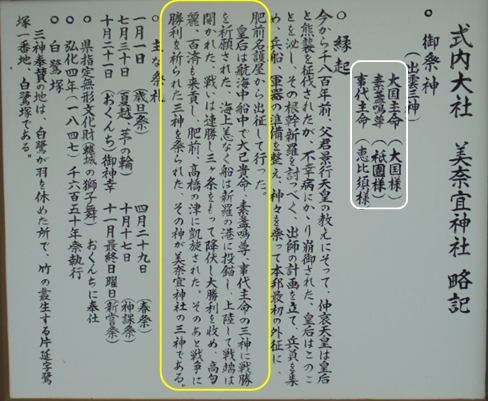 式内大社 美奈宜神社 略記
○ 御祭神
(出雲三神)
大国主命 (大国様)
素盞嗚尊 (祇園様)
事代主命 (恵比須様)
○ 縁起
今から千八百年前、父君景行天皇の教えにそって、仲哀天皇は皇后
と熊襲を征伐されたが、不幸病にかゝり崩御された。皇后はこのこ
とを泌し、その根幹新羅を討つべく、出師の計画を立て、兵員を集
め、兵船、軍器の準備を整え、神々を祭って本邦最初の外征に、
肥前名護屋から出征して行った。
皇后は航海中船中で大己貴命、素盞嗚尊、事代主命の三神に戦勝
を祈願された、海上恙なく船は新羅の港に投錨し、上陸して戦端は
開かれた、戦いは連勝し三ヶ条をもって降伏し大勝利を收め、高句
麗、百済も来貢し、肥前、高橋の津に凱旋された。そのあと戦争に
勝利を祈られた三神を祭られた、その神が美奈宜神社の三神である。
○ 主な祭礼
一月一日 (歳旦祭) 四月二十九日 (春祭)
七月三十日 (夏越、芋の輪) 十月十七日 (神諜祭)
十月二十一日 (おくんち)御神幸 十一月最終日曜日(新嘗祭)
○ 県指定無形文化財 蜷城の獅子舞) おくんちに奉仕
○ 弘化四年(一八四七) 千六百五十年祭執行
○ 白鷺塚
三神奉賛の地は、白鷺が羽を休めた所で、竹の叢生する片延字鷺
塚一番地、白鷺塚である。